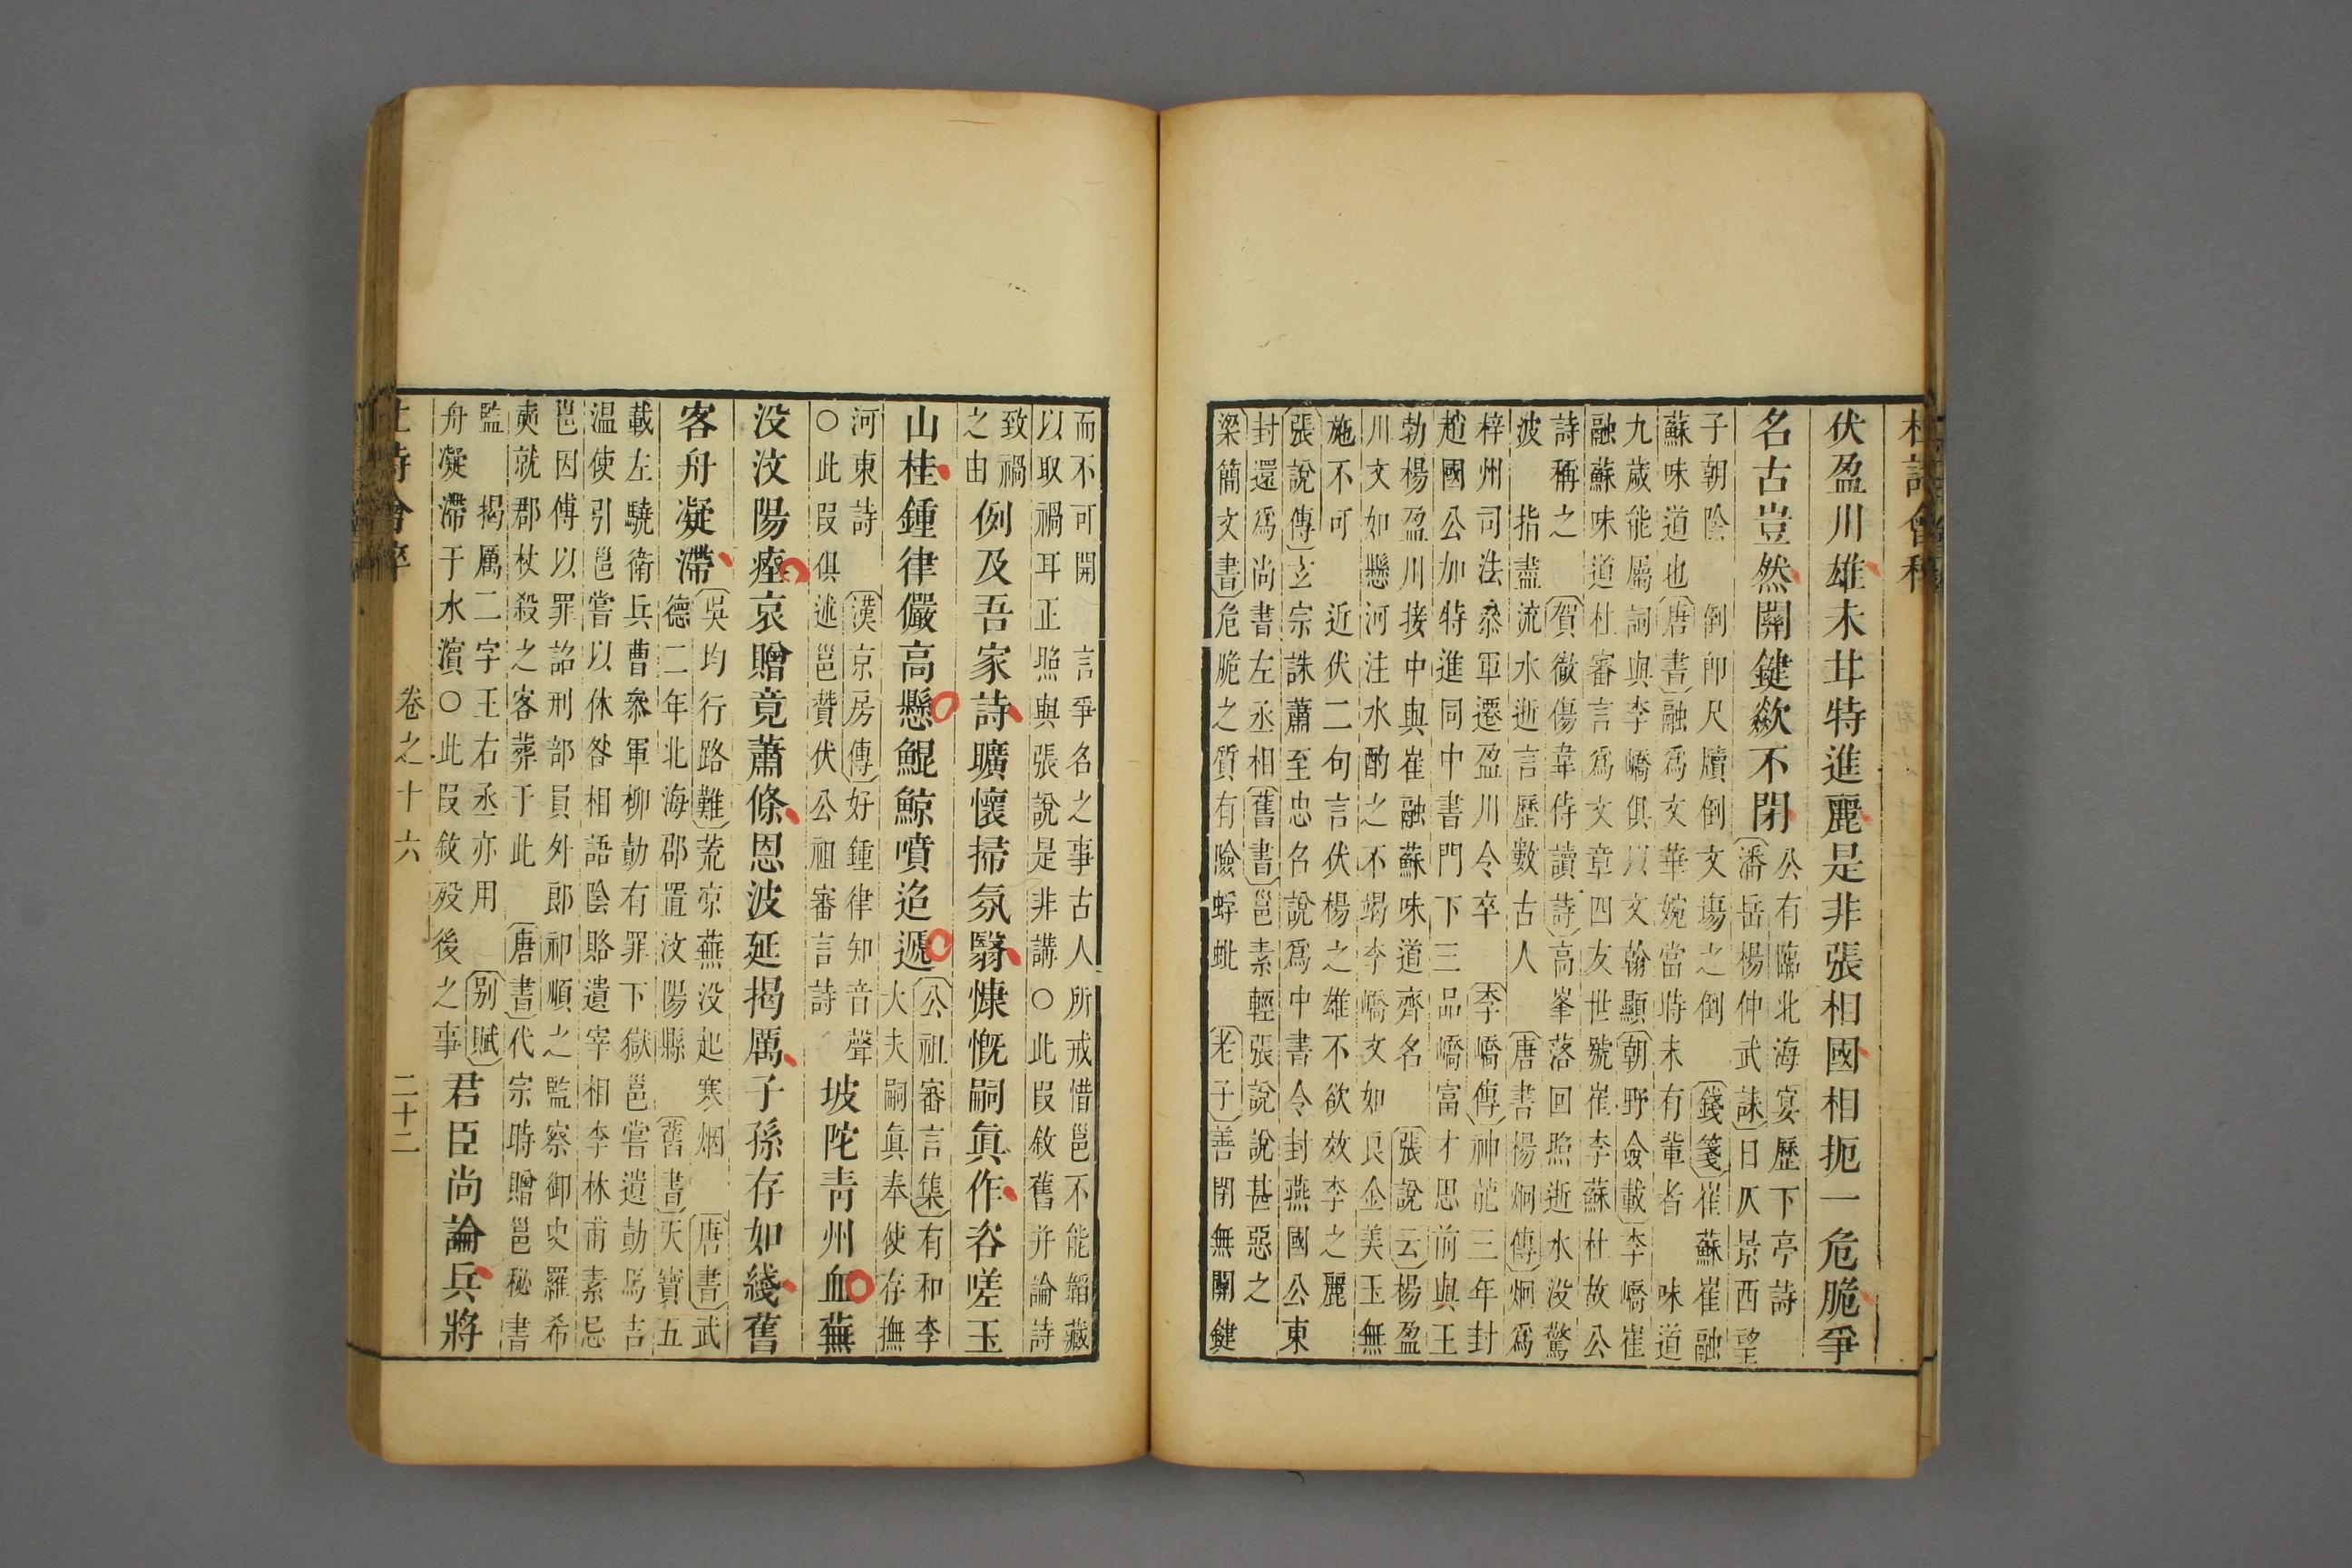 杜詩會稡
伏盈川雄未甘特進麗是非張相國相扼一危脆爭
名古豈然關鍵歘不閉
公有臨北海宴歷下亭詩
潘岳楊仲武誄日仄景西望
子朝陰 倒卽尺牘倒文塲之倒 錢箋崔蘇崔融
蘇味道也唐書融爲文華婉當時未有輩者 味道
九歲能屬詞與李嶠俱以文翰顯朝野僉載李嶠崔
融蘇味道杜審言爲文章四友世號崔李蘇杜故公
詩稱之 賀徽傷韋侍讀詩高峯落回照逝水没驚
波 指盡流水逝言歷數古人 唐書楊炯傳炯爲
梓州司法叅軍遷盈川令卒 李嶠傳神龍三年封
趙國公加特進同中書門下三品嶠富才思前與王
勃楊盈川接中與崔融蘇味道齊名 張說云楊盈
川文如懸河注水酌之不竭李嶠文如良金美玉無
施不可 近伏二句言伏楊之雄不欲效李之麗
張說傳玄宗誅蕭至忠名說爲中書令封燕國公東
封還爲尚書左丞相舊書邕素輕張說說甚惡之
梁簡文書危脆之質有險蜉蚍 老子善閉無關鍵
而不可開 言爭名之事古人所戒惜邕不能韜藏
以取禍耳正照與張說是非講○此叚敘舊并論詩
致禍
之由
例及吾家詩曠懷掃氛翳慷慨嗣眞作咨嗟玉
山桂鍾律儼高懸鯤鯨噴迨遞
公祖審言集有和李
大夫嗣眞奉使存撫
河東詩 漢京房傳好鍾律知音聲
○此叚俱述邕贊伏公祖審言詩
坡陀靑州血蕪
没汶陽瘞哀贈竟蕭條恩波延揭厲子孫存如綫舊
客舟凝滯
吳均行路難荒凉蕪没起寒烟 唐書武
德二年北海郡置汶陽縣 舊書天寶五
載左驍衛兵曹叅軍柳勣有罪下獄邕嘗遺勣馬吉
温使引邕嘗以休咎相語陰賂遺宰相李林甫素忌
邕因傅以罪詔刑部員外郎祁順之監察御史羅希
奭就郡杖殺之客葬于此 唐書代宗時贈邕秘書
監 揭厲二字王右丞亦用 别賦
舟凝滯于水濵○此叚敘殁後之事
君臣尚論兵將
杜詩會稡
卷之十六
二十二